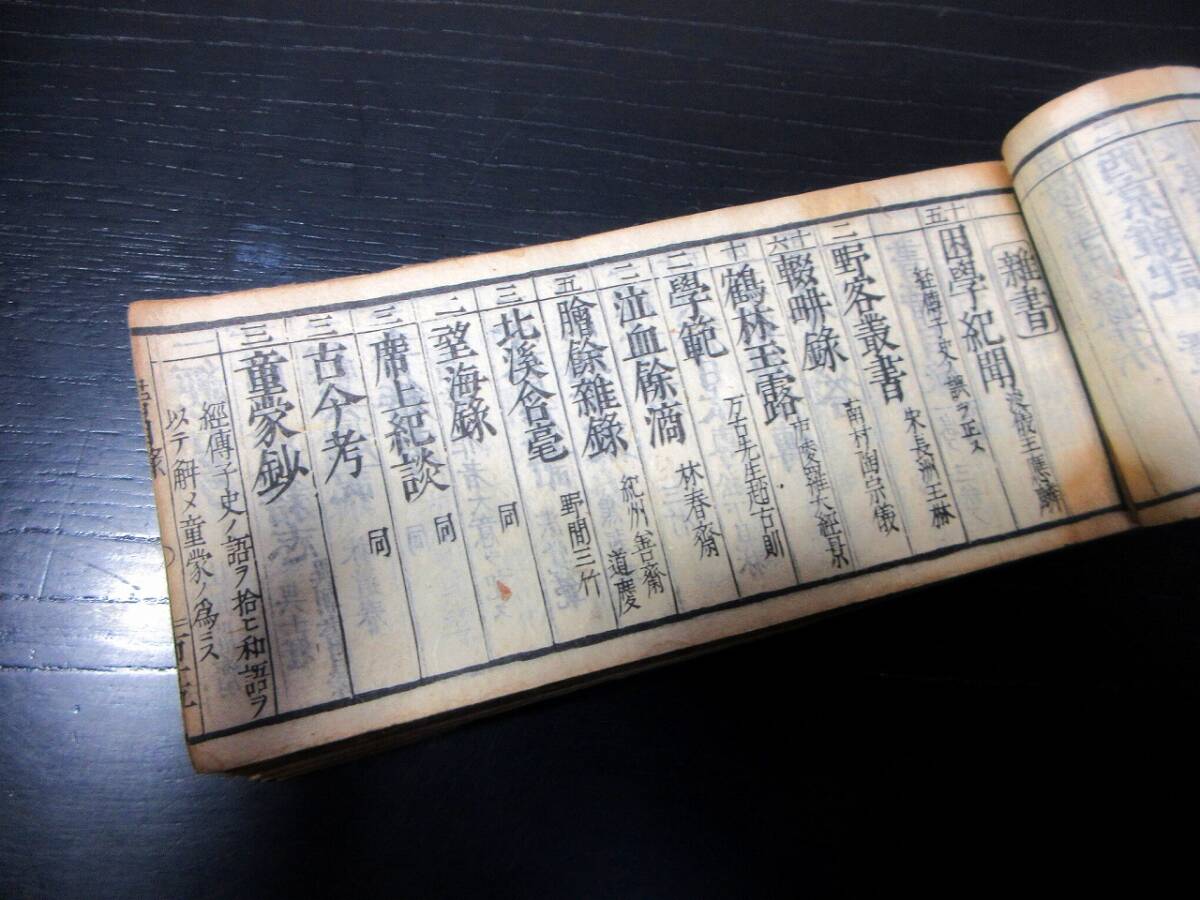 雜書
十五 困學紀聞 浚儀王應麟
經傳子史ノ誤ヲ正ス
二 野客叢書 宋長洲王楙
十六 輟畊録 南村陶宗儀
十 鶴林玉露 廬陵羅大經景綸
二 學範 万古先生趙古則
二 泣血餘滴 林春齋
五 膾餘雜錄 紀州善齋道慶
三 北溪含毫 野間三竹
二 望海錄 同
三 席上紀談 同
三 古今考 同
三 童蒙鈔
經傳子史ノ語ヲ拾ヒ和語ヲ
以テ解メ童蒙ノ爲ニス